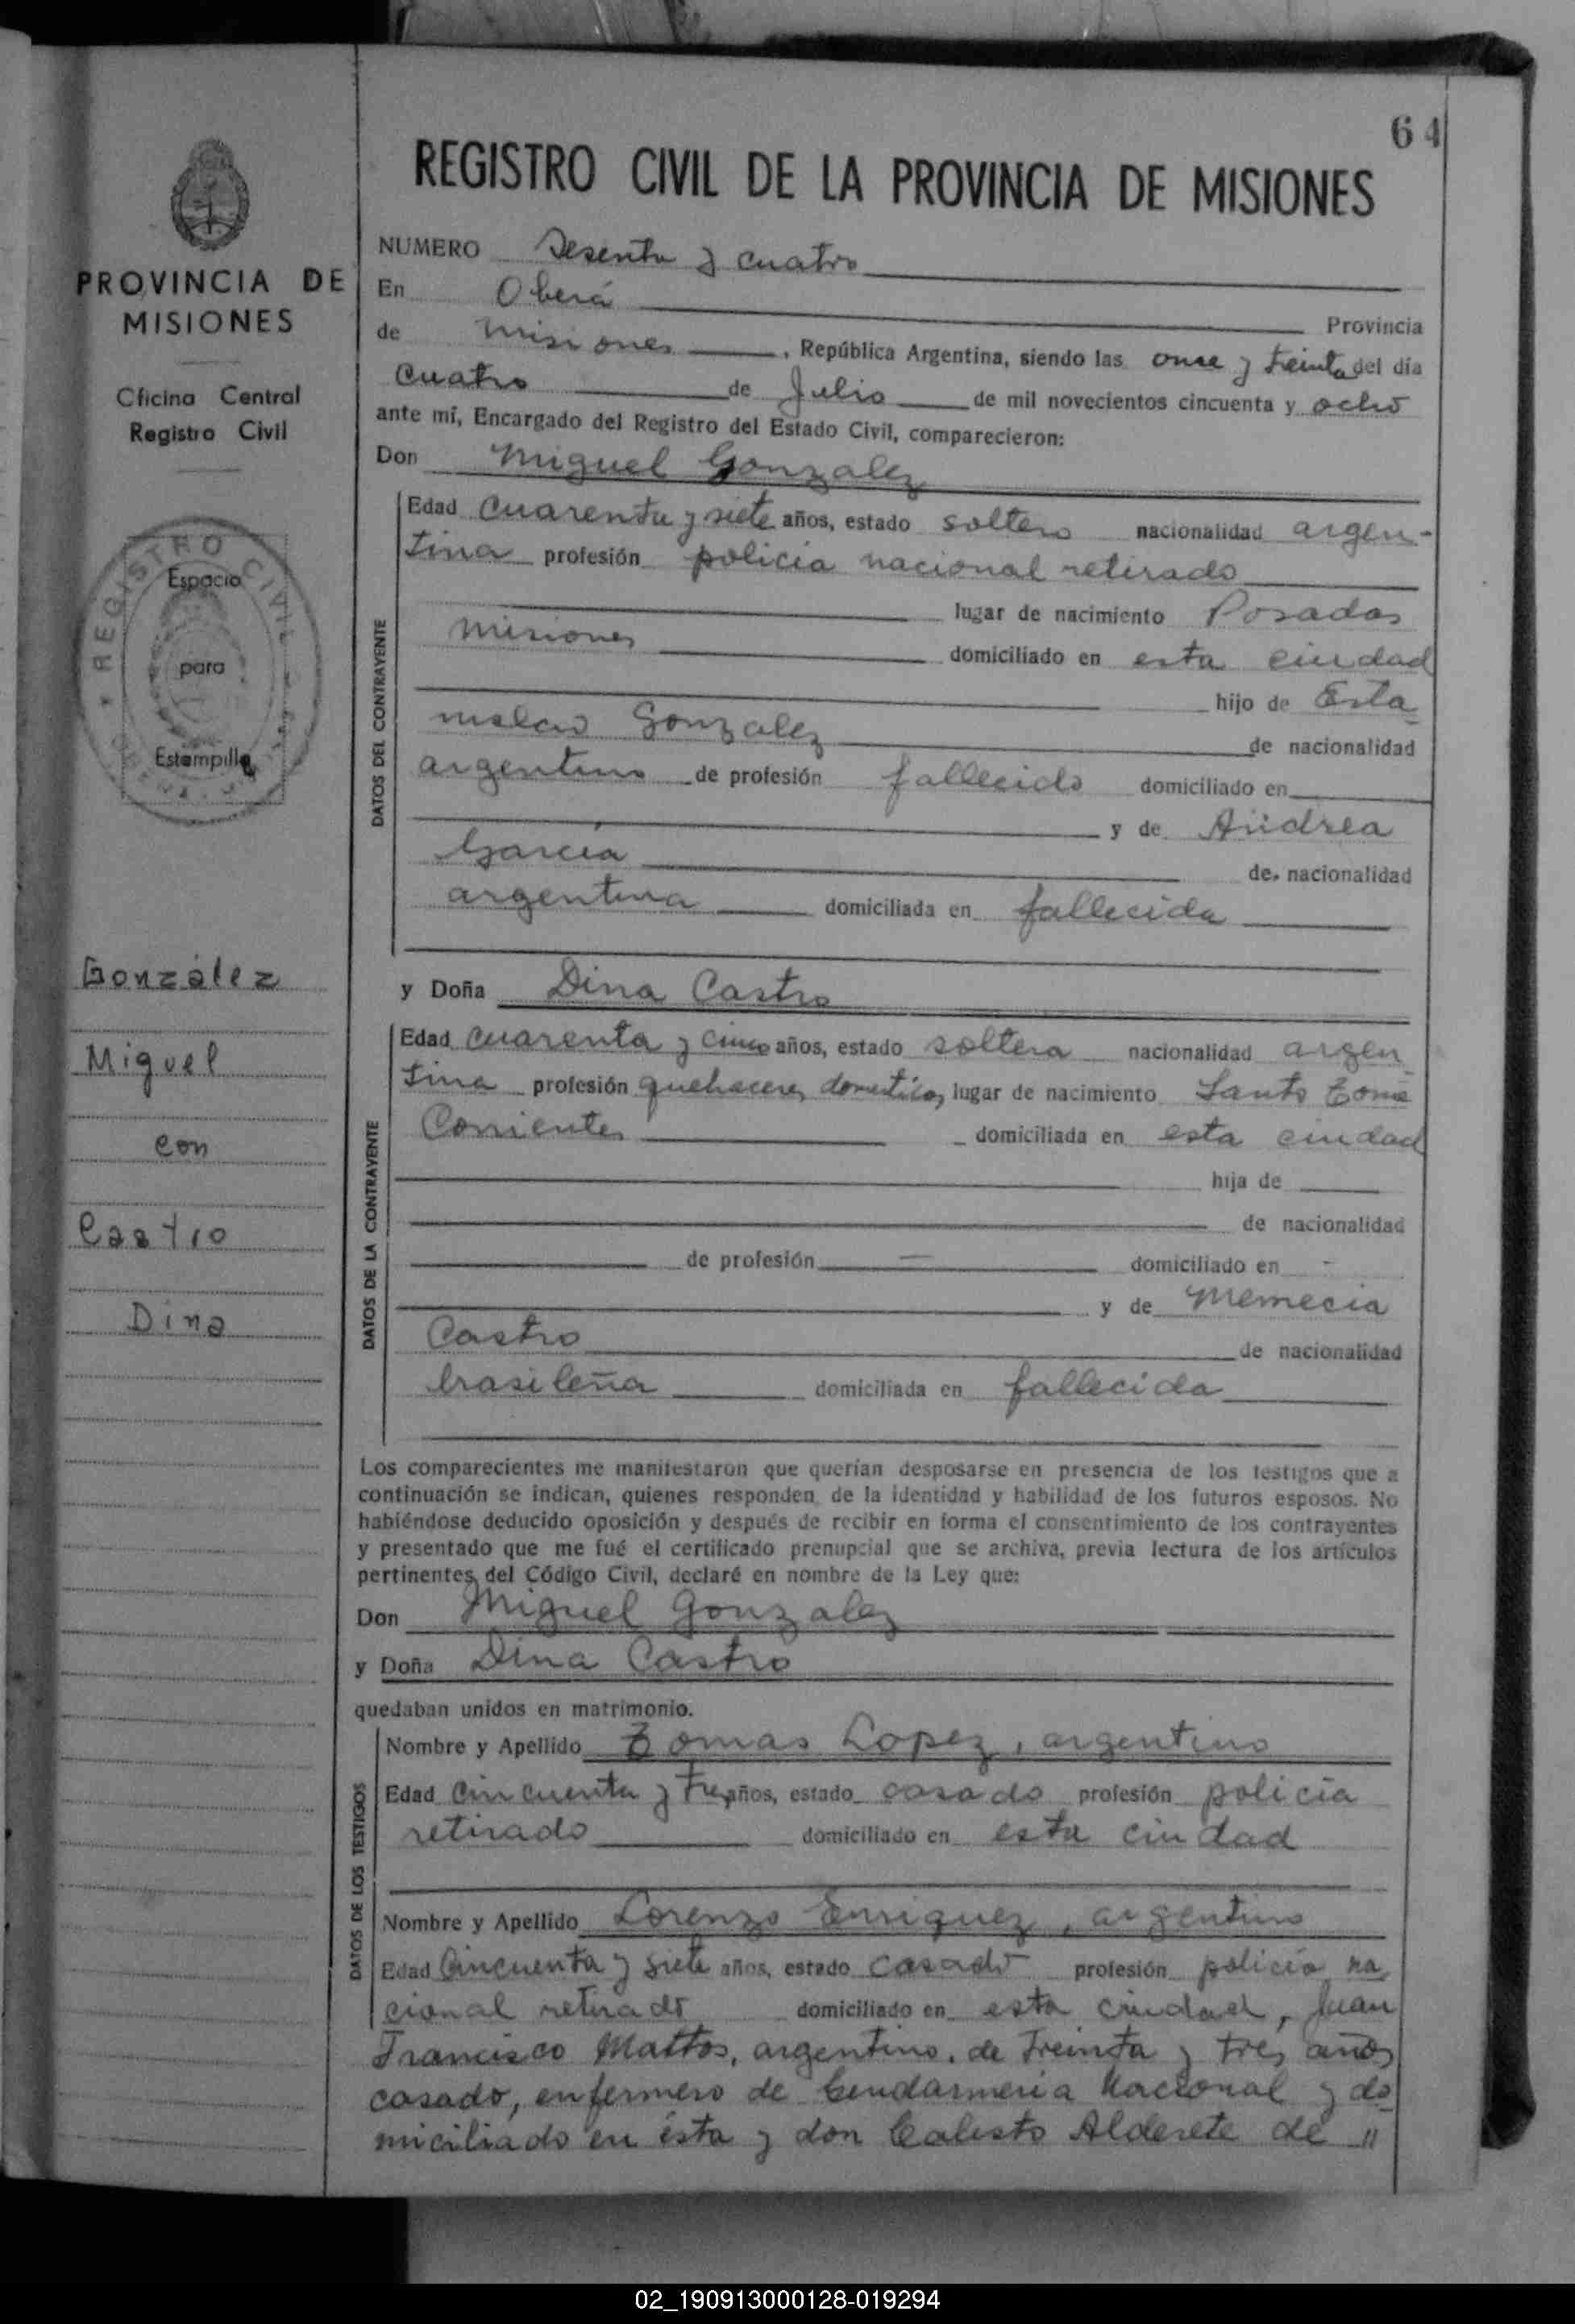 64
REGISTRO CIVIL DE LA PROVINCIA DE MISIONES
PROVINCIA DE
MISIONES
Oficina Central
Registro Civil
REGISTRO CIVIL
Espacio
para
Estampilla
González
Miguel
con
Castro
Dina
NUMERO Sesenta y cuatro
En Oberá Provincia
de Misiones, República Argentina, siendo las once y treinta del día
cuatro de Julio de mil novecientos cincuenta y ocho
ante mí, Encargado del Registro del Estado Civil, comparecieron:
Don Miguel Gonzalez
DATOS DEL CONTRAYENTE
Edad cuarenta y siete años, estado soltero nacionalidad argen-
tina profesión policía nacional retirado
lugar de nacimiento Posadas
Misiones domiciliado en esta ciudad
hijo de Esta
nislao Gonzalez de nacionalidad
argentino de profesión fallecido domiciliado en
y de Andrea
García de nacionalidad
argentina domiciliada en fallecida
y Doña Dina Castro
DATOS DE LA CONTRAYENTE
Edad cuarenta y cinco años, estado soltera nacionalidad argen
tina profesión quehaceres domesticos lugar de nacimiento Santo Tomé
Corrientes domiciliada en esta ciudad
hija de
de nacionalidad
de profesión — domiciliado en -
y de Memecia
Castro de nacionalidad
brasileña domiciliada en fallecida
Los comparecientes me manifestaron que querían desposarse en presencia de los testigos que a
continuación se indican, quienes responden de la identidad y habilidad de los futuros esposos. No
habiéndose deducido oposición y después de recibir en forma el consentimiento de los contrayentes
y presentado que me fué el certificado prenupcial que se archiva, previa lectura de los artículos
pertinentes del Código Civil, declaré en nombre de la Ley que:
Don Miguel Gonzalez
y Doña Dina Castro
quedaban unidos en matrimonio.
DATOS DE LOS TESTIGOS
Nombre y Apellido Tomas Lopez, argentino
Edad cincuenta y tres años, estado casado profesión policía
retirado domiciliado en esta ciudad
Nombre y Apellido Lorenzo Enriquez, argentino
Edad Cincuenta y siete años, estado casado profesión policía na
cional retirado domiciliado en esta ciudad, Juan
Francisco Mattos, argentino, de treinta y tres años
casado, enfermero de Gendarmeria Nacional y do
miciliado en ésta y don Calisto Alderete de "
02_190913000128-019294